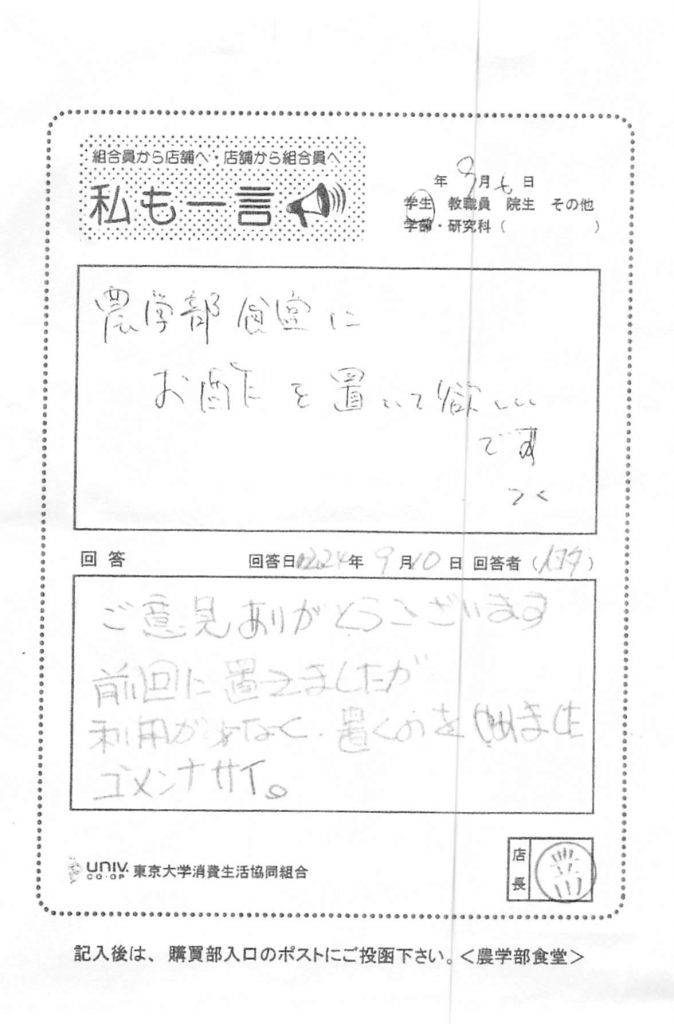 組合員から店舗へ・店舗から組合員へ
私も一言
年 9月 七日
学生 教職員 院生 その他
学部・研究科 ( )
農学部食堂に
お酢を置いて欲しい
です
回答 回答日 2024年 9月10日 回答者 ( )
ご意見ありがとうございます
前回に置きましたが
利用が少なく、置くのをやめました
ゴメンナサイ。
UNIV.
CO・OP
東京大学消費生活協同組合
店長
記入後は、購買部入口のポストにご投函下さい。<農学部食堂>